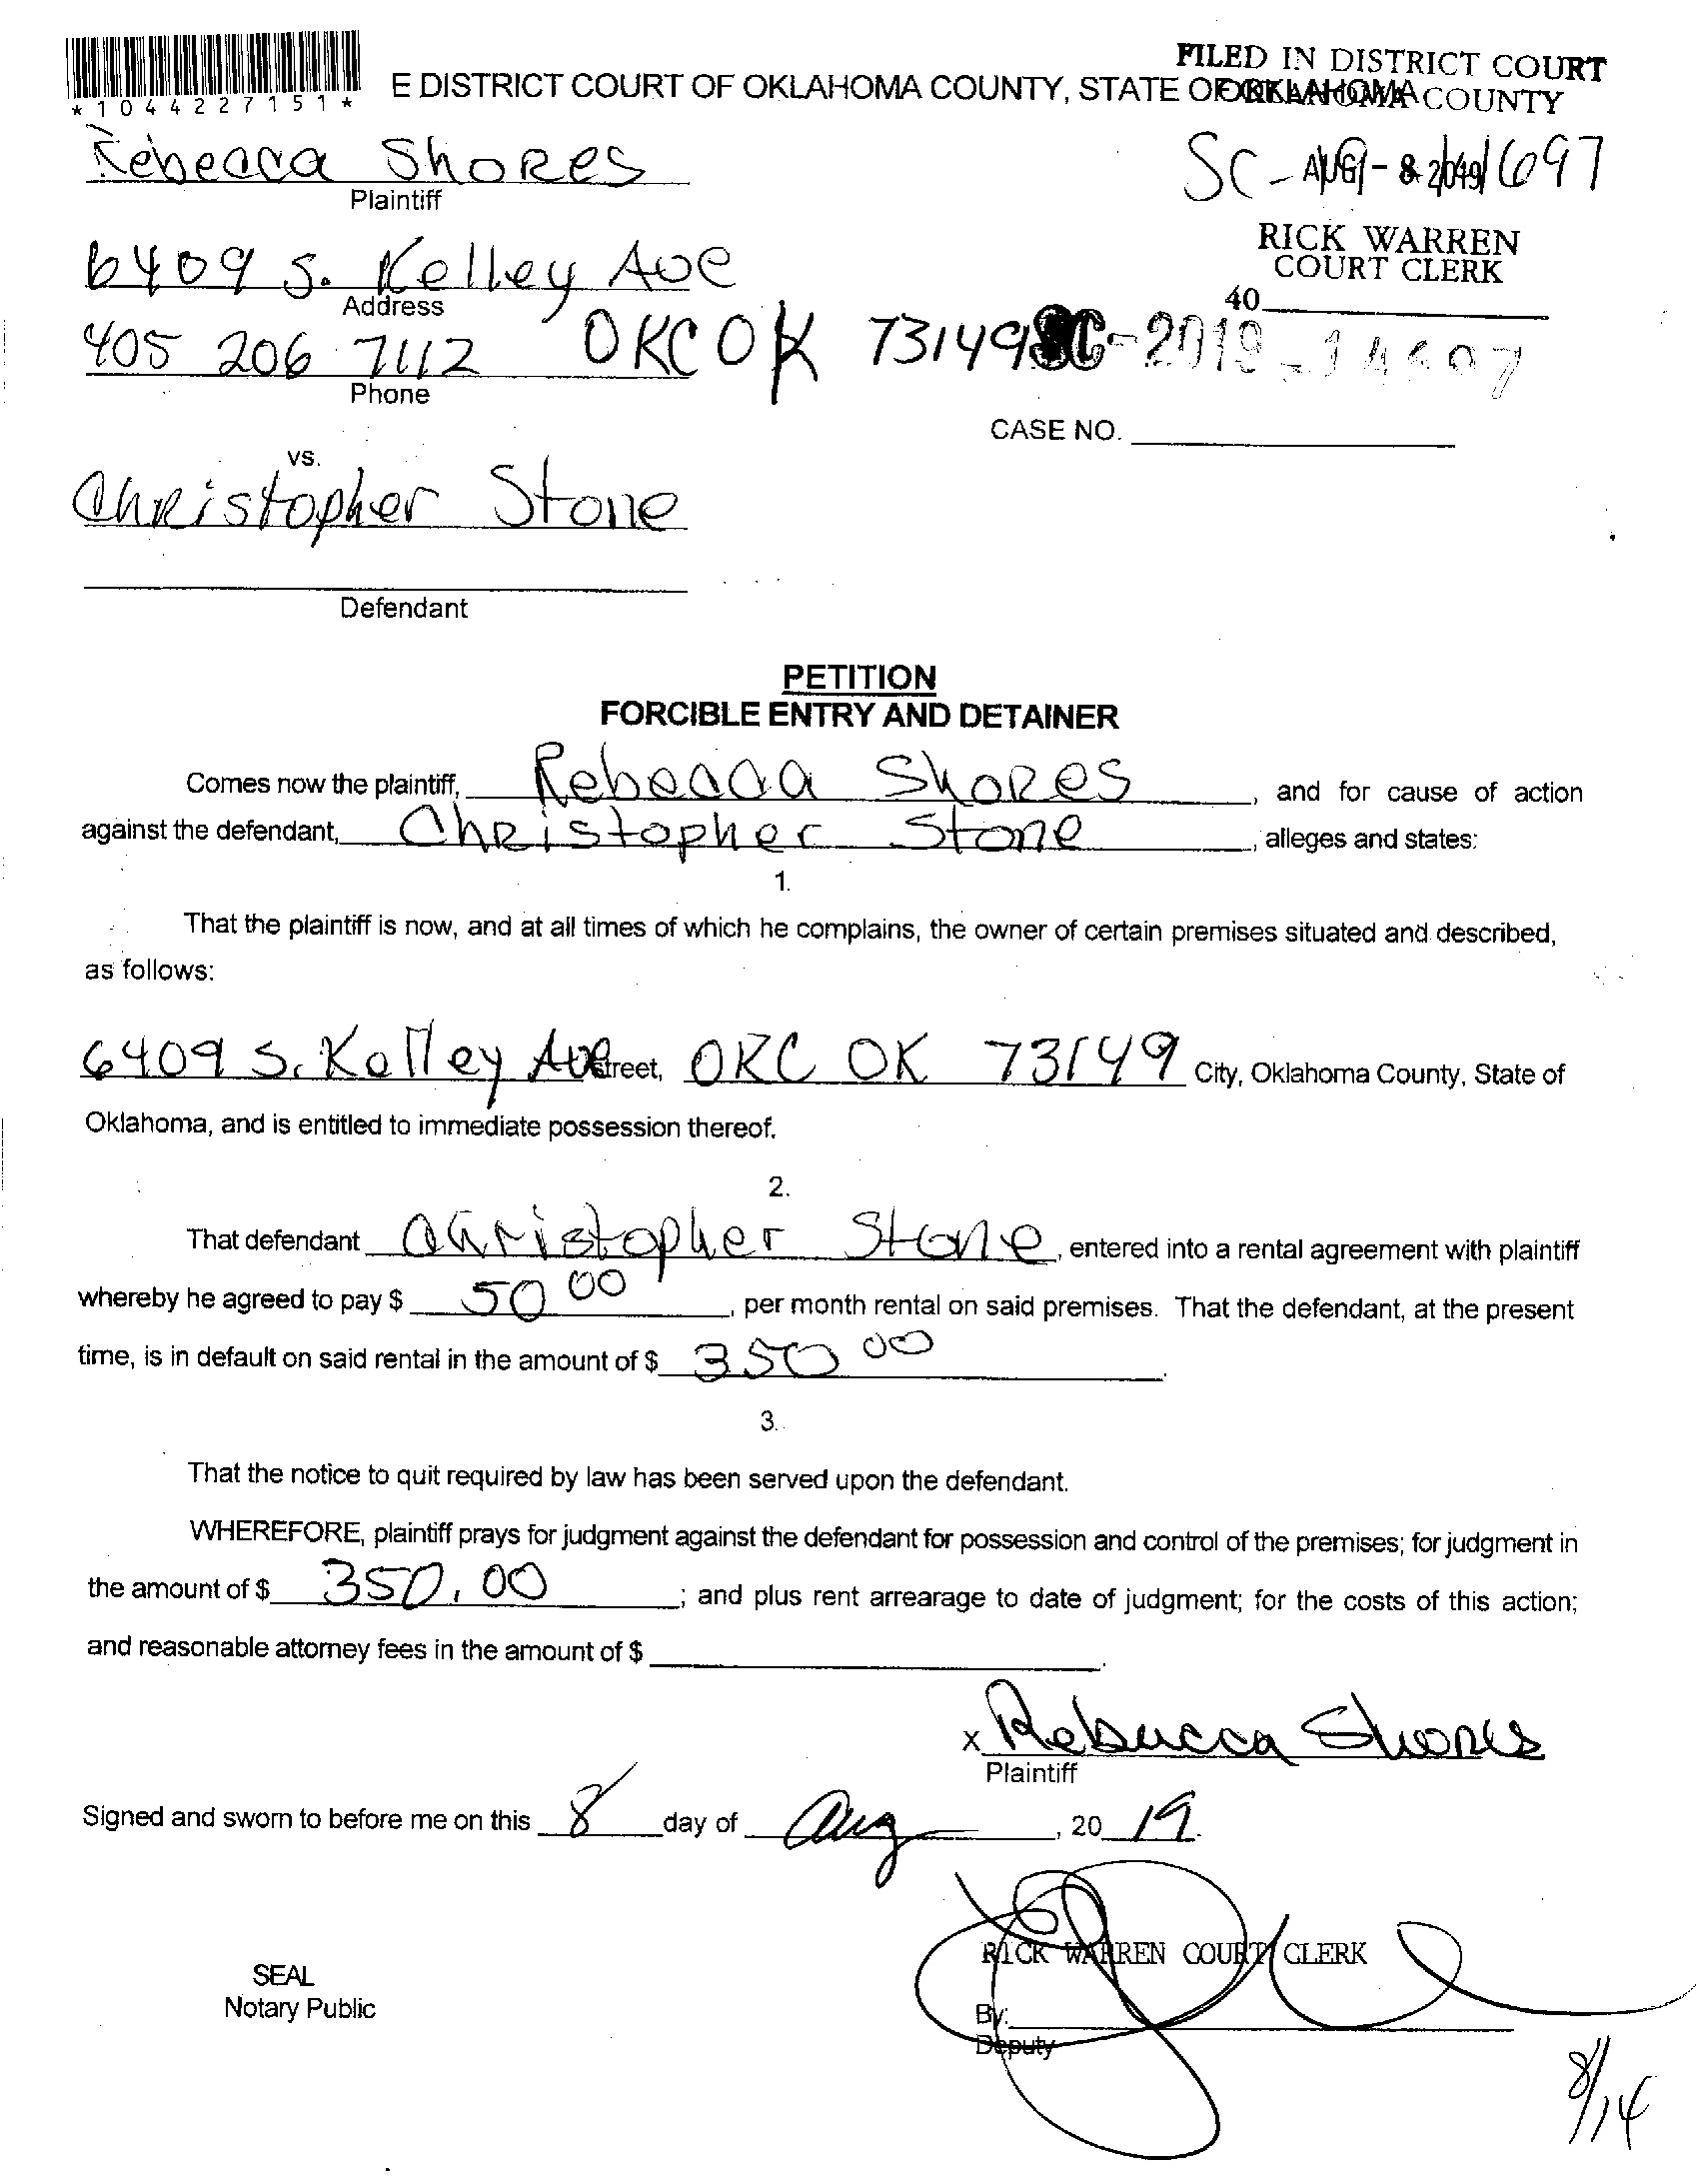 *1044227151*
E DISTRICT COURT OF OKLAHOMA COUNTY, STATE OF OKLAHOMA
FILED IN DISTRICT COURT
OKLAHOMA COUNTY
Rebecca Shores
Plaintiff
SC-
AUG - 8 2019
RICK WARREN
COURT CLERK
40
6409 S. Kelley Ave
Address
405 206 7112 OKC OK 73149
Phone
CASE NO.
vs.
Christopher Stone
Defendant
PETITION
FORCIBLE ENTRY AND DETAINER
Comes now the plaintiff, Rebecca Shores, and for cause of action
against the defendant, Christopher Stone, alleges and states:
1.
That the plaintiff is now, and at all times of which he complains, the owner of certain premises situated and described,
as follows:
6409 S. Kelley Ave Street, OKC OK 73149 City, Oklahoma County, State of
Oklahoma, and is entitled to immediate possession thereof.
2.
That defendant Christopher Stone, entered into a rental agreement with plaintiff
whereby he agreed to pay $ 50 00, per month rental on said premises. That the defendant, at the present
time, is in default on said rental in the amount of $ 350 00.
3.
That the notice to quit required by law has been served upon the defendant.
WHEREFORE, plaintiff prays for judgment against the defendant for possession and control of the premises; for judgment in
the amount of $ 350.00; and plus rent arrearage to date of judgment; for the costs of this action;
and reasonable attorney fees in the amount of $
x Rebecca Shores
Plaintiff
Signed and sworn to before me on this 8 day of Aug, 20 19.
RICK WARREN COURT CLERK
SEAL
Notary Public
By:
Deputy
8/14